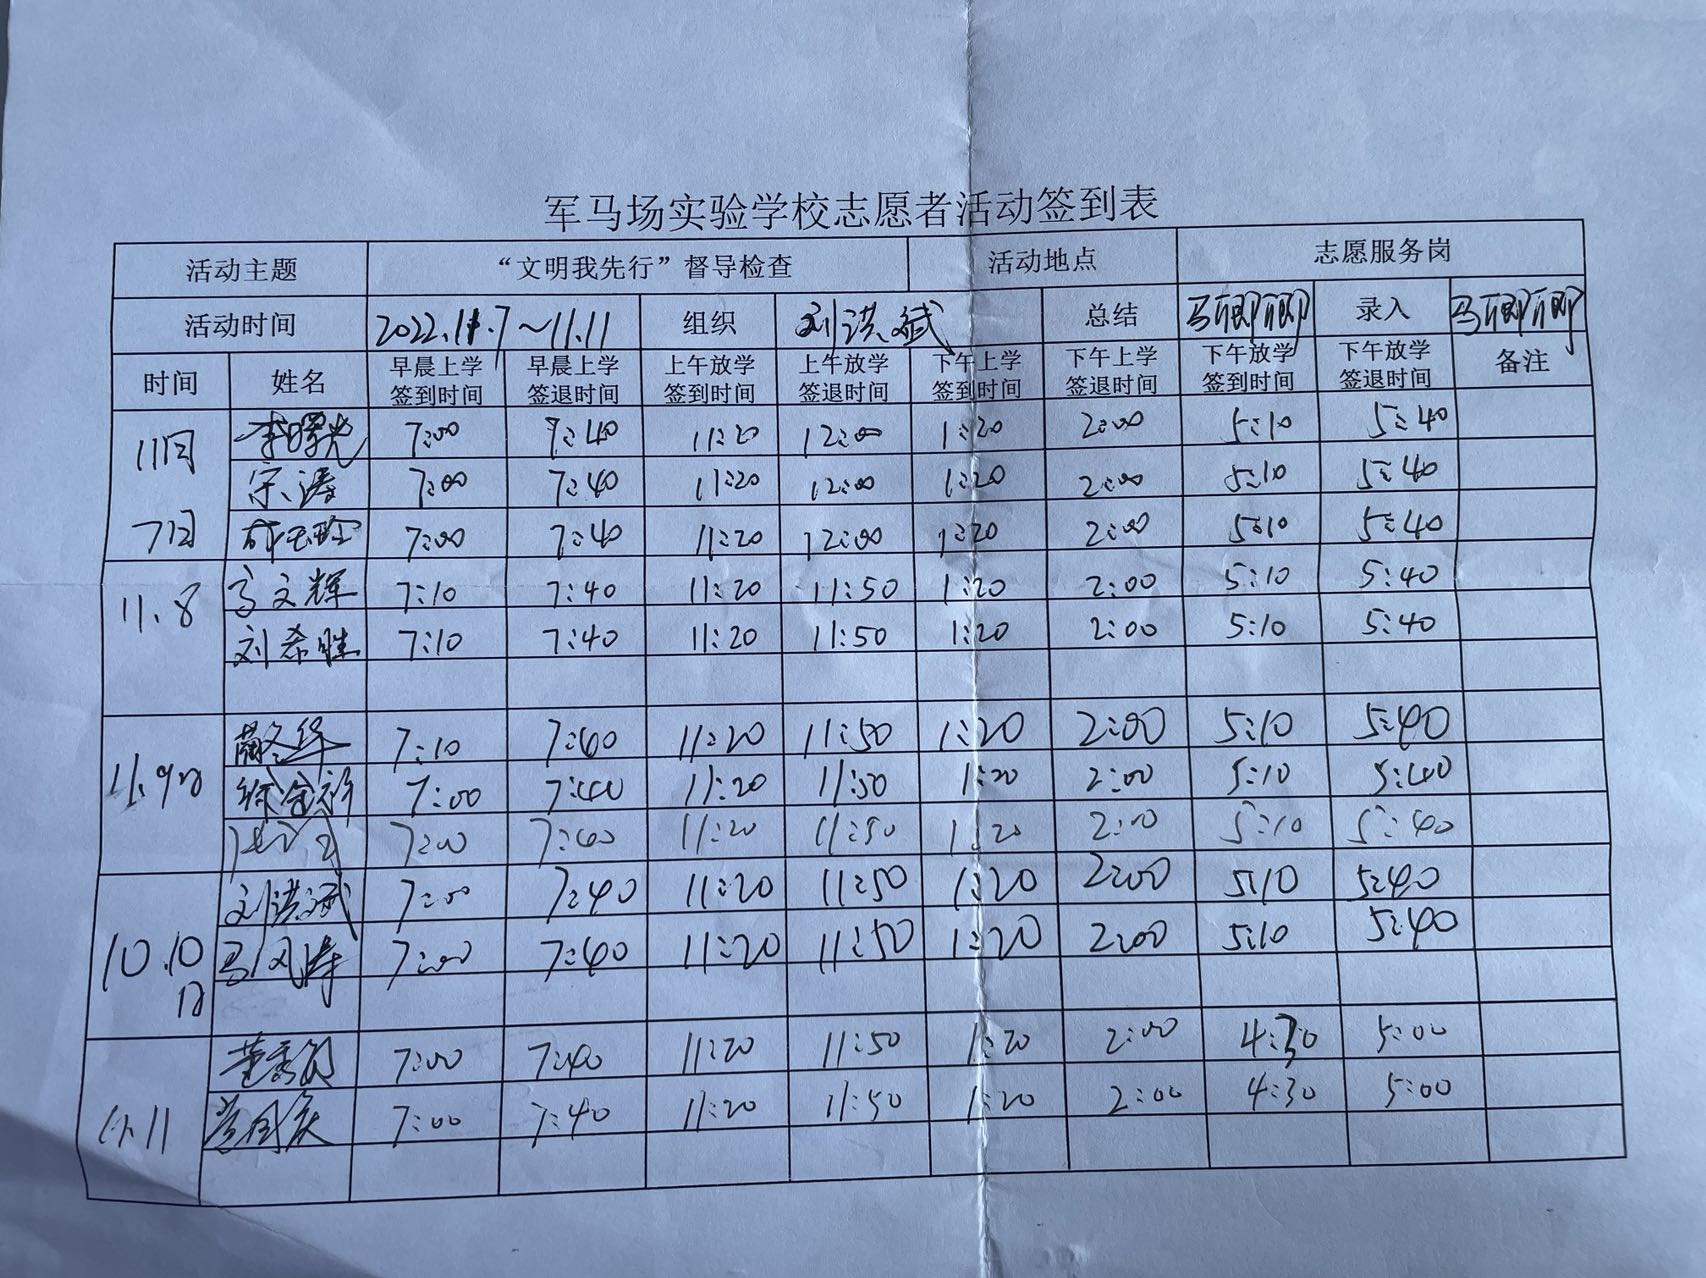 军马场实验学校志愿者活动签到表
活动主题 “文明我先行”督导检查 活动地点 志愿服务岗
活动时间 2022.11.7~11.11 组织 刘洪斌 总结 录入
时间 姓名 早晨上学签到时间 早晨上学签退时间 上午放学签到时间 上午放学签退时间 下午上学签到时间 下午上学签退时间 下午放学签到时间 下午放学签退时间 备注
11月7日 李曙光 7:00 7:40 11:20 12:00 1:20 2:00 5:10 5:40
宋涛 7:00 7:40 11:20 12:00 1:20 2:00 5:10 5:40
7:00 7:40 11:20 12:00 1:20 2:00 5:10 5:40
11.8 高文辉 7:10 7:40 11:20 11:50 1:20 2:00 5:10 5:40
刘希胜 7:10 7:40 11:20 11:50 1:20 2:00 5:10 5:40
11.9日 7:10 7:40 11:20 11:50 1:20 2:00 5:10 5:40
7:00 7:40 11:20 11:50 1:20 2:00 5:10 5:40
7:00 7:40 11:20 11:50 1:20 2:00 5:10 5:40
10.10日 刘洪斌 7:00 7:40 11:20 11:50 1:20 2:00 5:10 5:40
马风涛 7:00 7:40 11:20 11:50 1:20 2:00 5:10 5:40
11.11 7:00 7:40 11:20 11:50 1:20 2:00 4:30 5:00
7:00 7:40 11:20 11:50 1:20 2:00 4:30 5:00